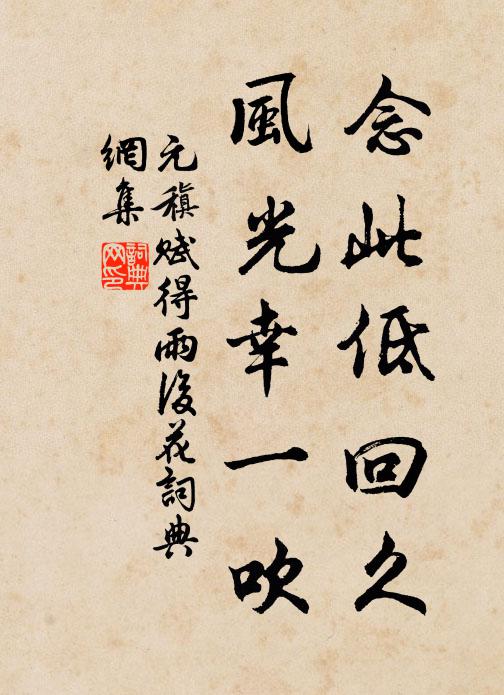 念此低回久
風光幸一吹
元稹賦得雨後花詞典
網集
詞典
网印